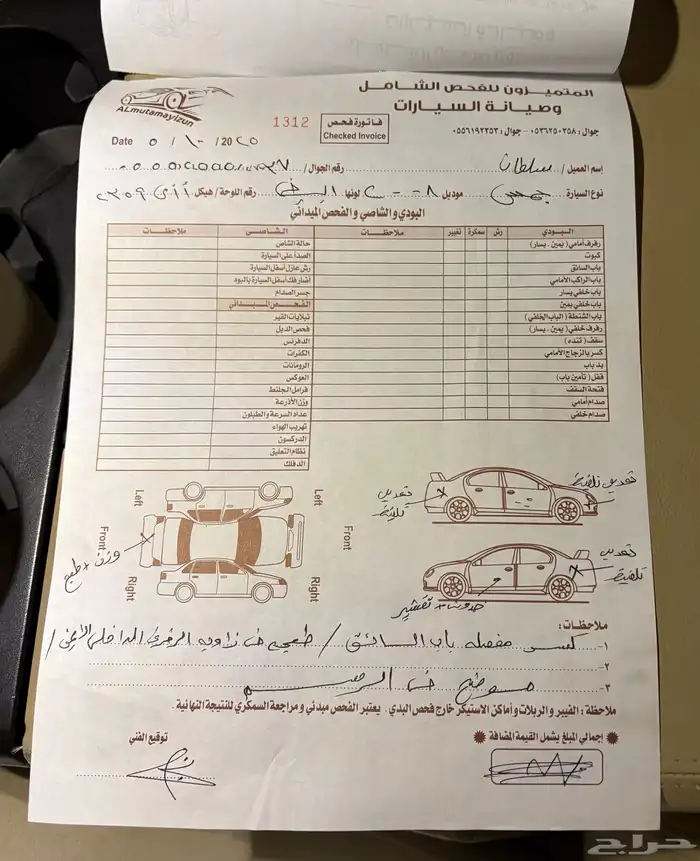 المتميزون للفحص الشامل
وصيانة السيارات
جوال: ٠٥٣٦٢٥٠٢٥٨ - جوال: ٠٥٥٦١٩٢٣٥٣
ALmutamayizun
1312
فاتورة فحص
Checked Invoice
Date ٥ / ١٠ / 20٢٥
إسم العميل / سلطان
رقم الجوال /
نوع السيارة جمس موديل ٢٠٠٨ لونها ابيض رقم اللوحة / هيكل
البودي والشاصي والفحص الميداني
البـــودي رش سمكرة تغيير ملاحظات الشاصي ملاحظات
رفرف أمامي (يمين . يسار) حالة الشاص
كبوت الصدأ على السيارة
باب السائق رش عازل أسفل السيارة
باب الراكب الأمامي أضار فك أسفل السيارة بالبود
باب خلفي يسار جسر الصدام
باب خلفي يمين الفحص الميداني
باب الشنطة (الباب الخلفي) تبلايات القير
رفرف خلفي (يمين . يسار) فحص الدبل
سقف (تنده) الدفرنس
كسر بالزجاج الأمامي الكفرات
يد باب الرومانات
قفل (تأمين باب) العوكس
فتحة السقف فرامل الجلنط
صدام أمامي وزن الأذرعة
صدام خلفي عداد السرعة والطبلون
تهريب الهواء
الدركسون
نظام التعليق
الدفلك
Left
Left
Front
Front
Right
Right
وزن + طبع
تعديل تلميع
تعديل تلميع
تعديل تلميع
ملاحظات:
١- كسر مفصله باب السائق /
٢-
٣-
ملاحظة: القيير والربلات وأماكن الاستيكر خارج فحص البدي . يعتبر الفحص مبدئي ومراجعة السمكري للنتيجة النهائية .
إجمالي المبلغ يشمل القيمة المضافة
توقيع الفني
حراج